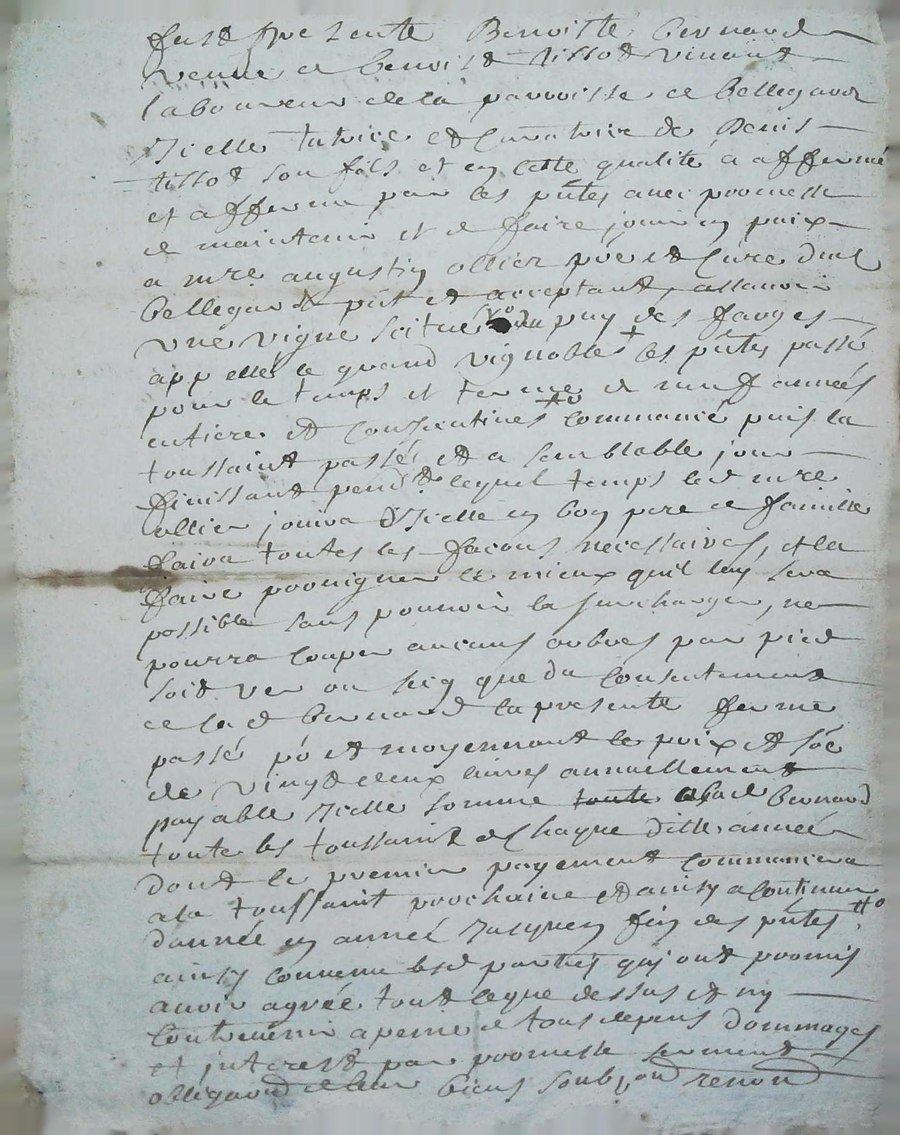 fust presente Benoiste bernard
veuve de benoist tissot vivant
laboureur de la parroisse de bellegarde
Icelle tutrice et Curatrice de Denis
tissot son fils et en cette qualité a affermé
et afferme par les pntes avec promesse
de maintenir et de faire jouir en paix
a mre augustin ollier pre et Curé dud
bellegarde pnt et acceptant, assavoir
une vigne scitue au puy des farges
appellé le grand vignoble + les pntes passé
pour le temps et terme de neuf années
entiere et Consecutives commancé puis la
toussaint passés et a semblable jour
finissant pendt lequel temps led mre
ollier jouira d'Icelle en bon pere de famille
faira toutes les facons necessaires, et la
faire provigner le mieux quil luy sera
possible sans pouvoir la surcharger, ne
pourra Couper aucuns arbres par pied
soit ver ou secq que du Consentement
de lad bernard la presente ferme
passé et moyennant le prix et soe
de vingt deux livres annuellement
payable Icelle somme a lad Bernard
toute les toussaint de Chaque ditte année
dont le premier payement Commancera
a la toussaint prochaine et ainsy a Continuer
dannée en année Jusquen fin des pntes
ainsy convenu lesd parties qui ont promis
avoir agréé tout ceque dessus et ny
Contrevenir a peine de tous depens dommages
et interest par promesse serment
obligaon de leur biens soub, on renon